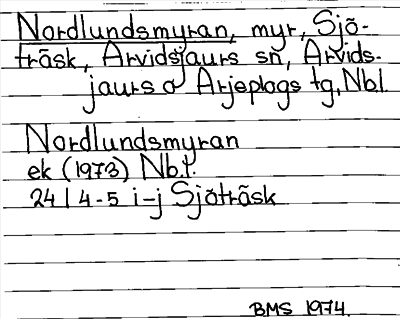 Nordlundsmyran, myr, Sjö-
träsk, Arvidsjaurs sn, Arvids-
jaurs o Arjeplogs tg, Nbl
Nordlundsmyran
ek (1973) Nb.l.
24 I 4-5 i-j Sjöträsk
BMS 1974.